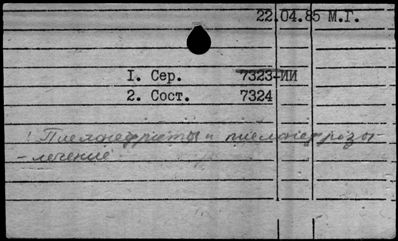 22.04.85 М.Г.
1. Сер. 7323-ИИ
2. Сост. 7324
! Пиелонефриты и пиелонефрозы
- лечение